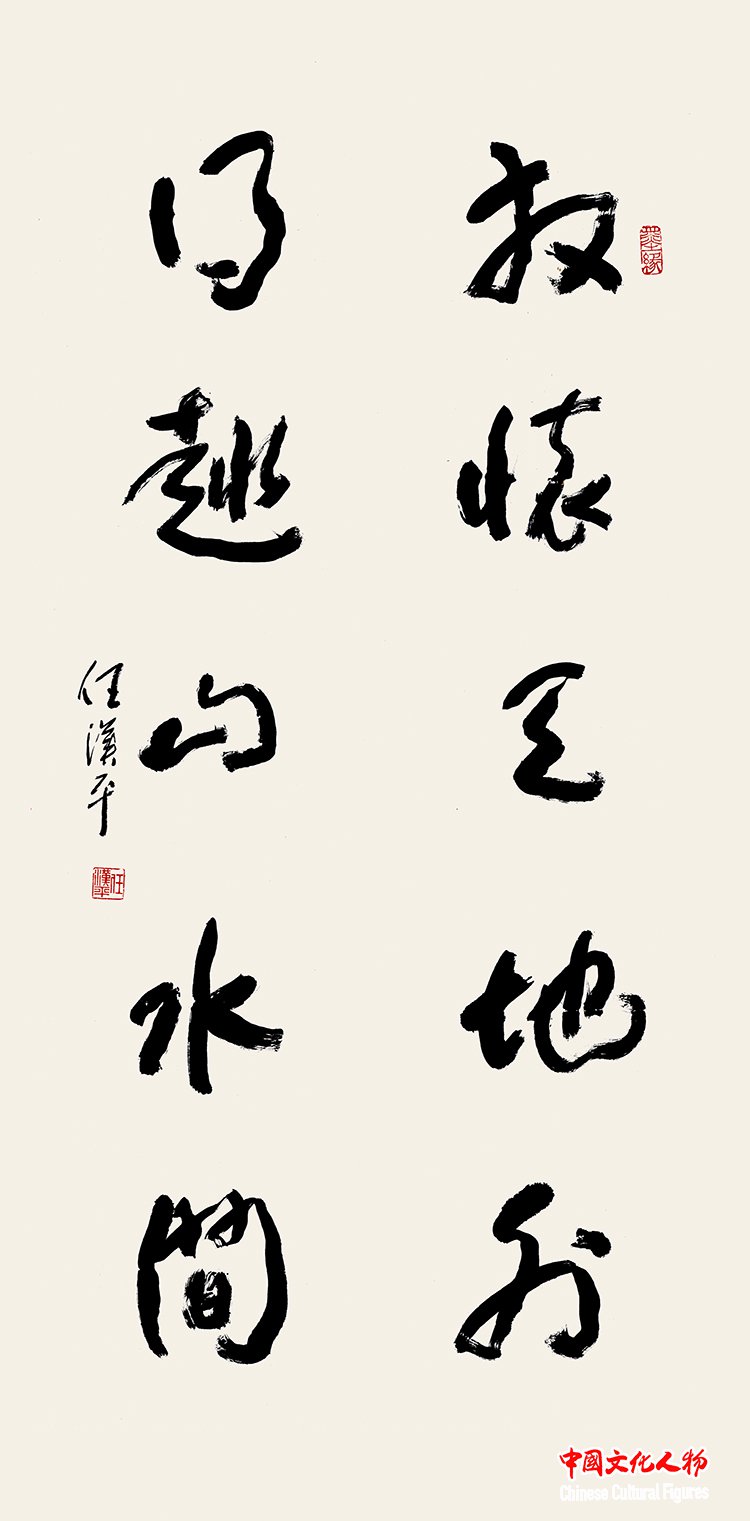 墨緣
放懷天地外
得趣山水間
任漢平
任漢平
中國文化人物
Chinese Cultural Figures